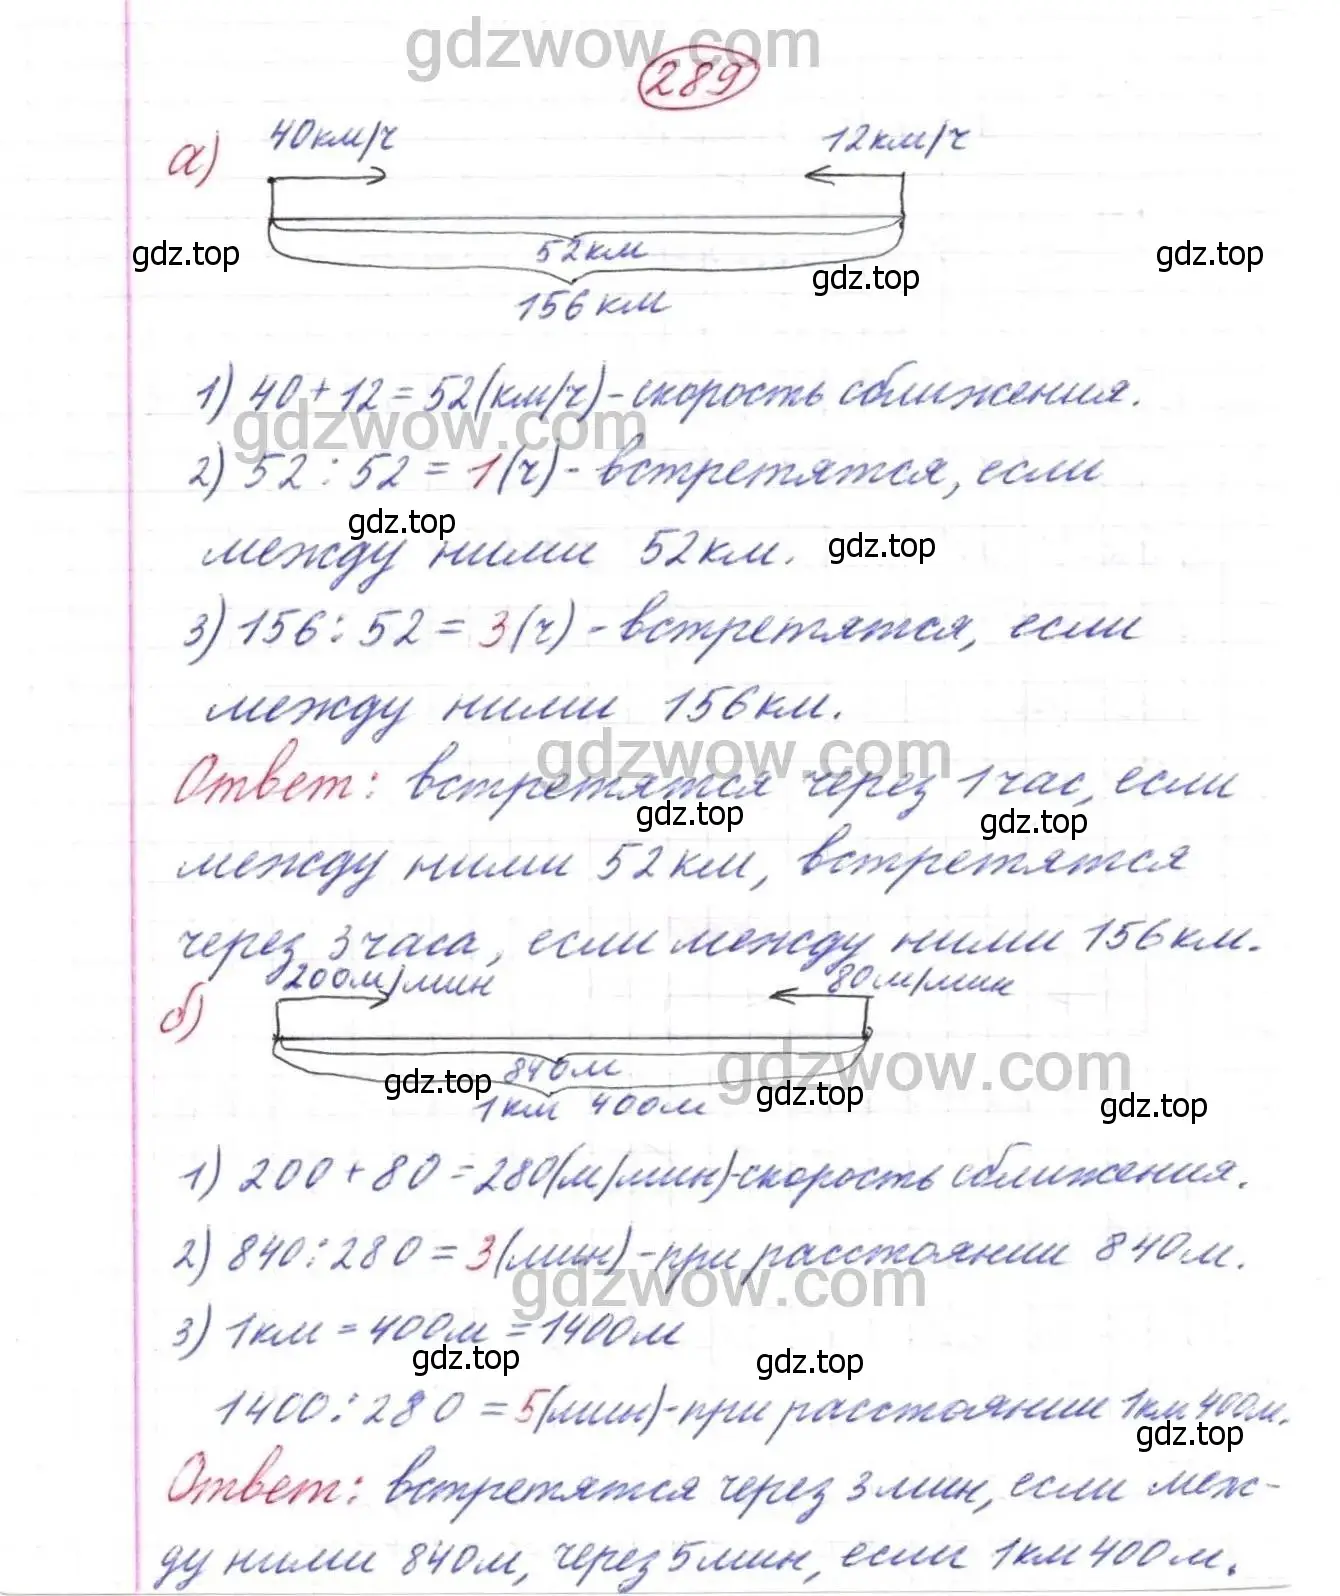 gdzwow.com
289
а) 40км/ч 12км/ч
gdz.top 52км gdz.top gdz.top
156км
1) 40+12=52(км/ч)-скорость сближения.
gdzwow.com
2) 52:52=1(ч)-встретятся, если
gdz.top
между ними 52км. gdz.top
3) 156:52=3(ч)-встретятся, если
между ними 156км.
gdzwow.com
Ответ: встретятся через 1 час, если
gdz.top gdz.top
между ними 52км, встретятся
через 3 часа, если между ними 156км.
б) 200м/мин 80м/мин
gdzwow.com
840м
gdz.top gdz.top gdz.top
1км 400м
1) 200+80=280(м/мин)-скорость сближения.
2) 840:280=3(мин)-при расстоянии 840м.
gdzwow.com
3) 1км=400м=1400м
gdz.top gdz.top
1400:280=5(мин)-при расстоянии 1км 400м.
gdz.top
Ответ: встретятся через 3мин, если меж-
ду ними 840м, через 5мин, если 1км 400м.